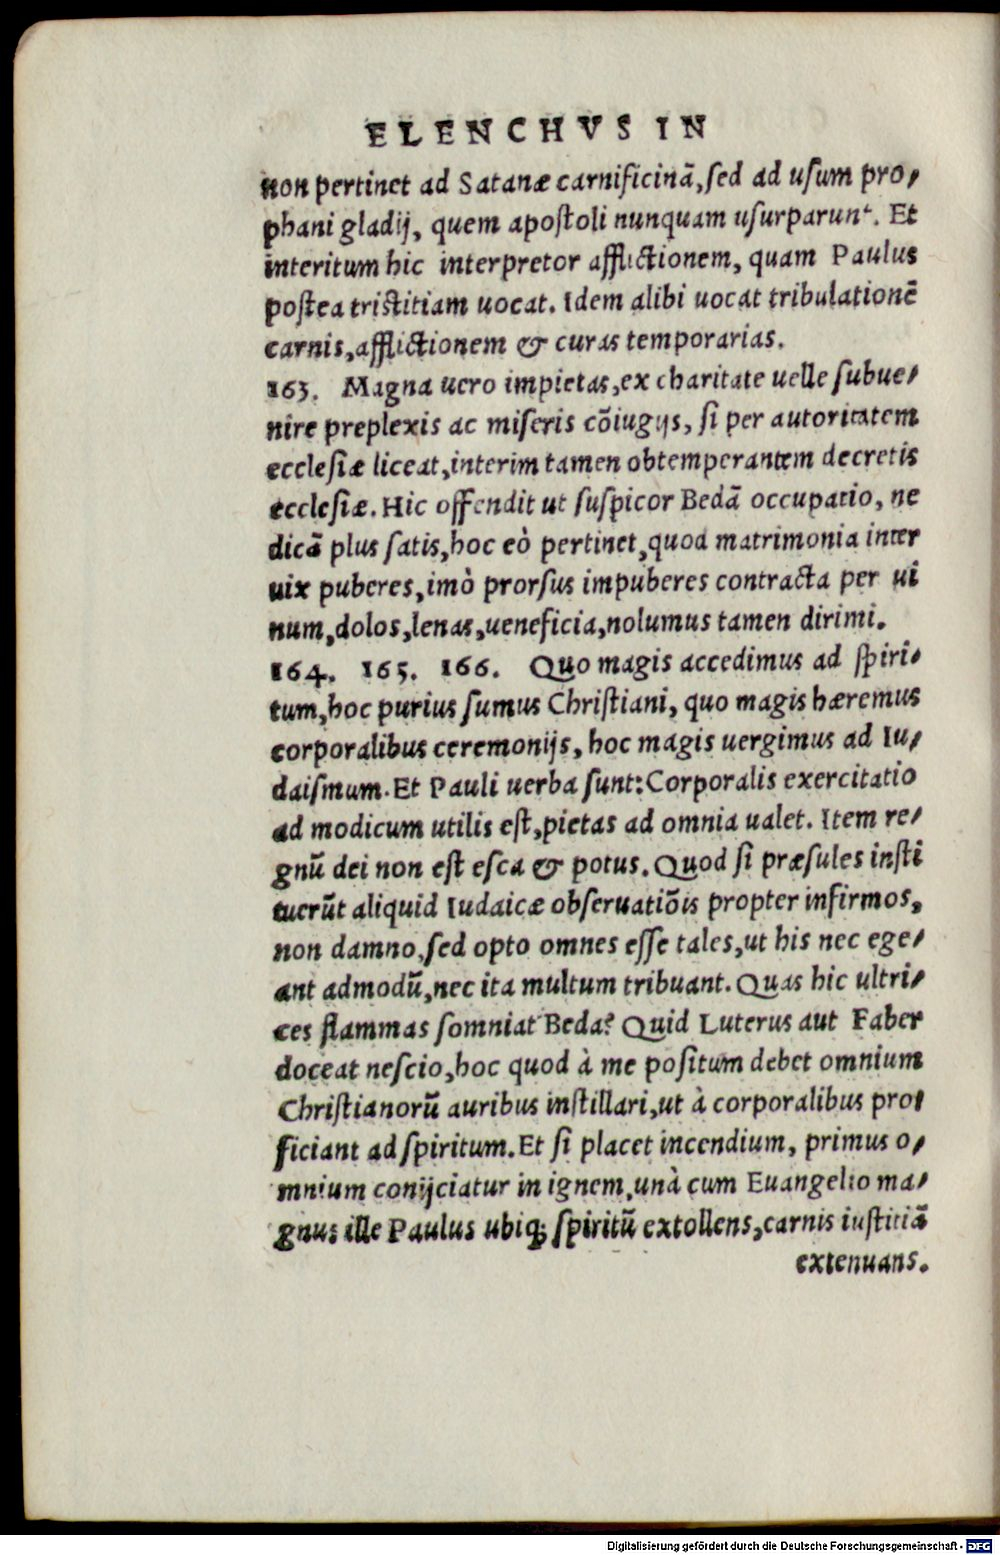 ELENCHVS IN
non pertinet ad Satanæ carnificinā, sed ad usum pro-
phani gladij, quem apostoli nunquam usurparunt. Et
interitum hic interpretor afflictionem, quam Paulus
postea tristitiam uocat. Idem alibi uocat tribulationē
carnis, afflictionem & curas temporarias.
163. Magna uero impietas, ex charitate uelle subue-
nire preplexis ac miseris cōiugijs, si per autoritatem
ecclesiæ liceat, interim tamen obtemperantem decretis
ecclesiæ. Hic offendit ut suspicor Bedā occupatio, ne
dicā plus satis, hoc eò pertinet, quod matrimonia inter
uix puberes, imò prorsus impuberes contracta per ui
num, dolos, lenas, ueneficia, nolumus tamen dirimi.
164. 165. 166. Quo magis accedimus ad spiri-
tum, hoc purius sumus Christiani, quo magis hæremus
corporalibus ceremonijs, hoc magis uergimus ad Iu-
daismum. Et Pauli uerba sunt: Corporalis exercitatio
ad modicum utilis est, pietas ad omnia ualet. Item re-
gnū dei non est esca & potus. Quod si præsules insti
tuerūt aliquid Iudaicæ obseruatiōis propter infirmos,
non damno, sed opto omnes esse tales, ut his nec ege-
ant admodū, nec ita multum tribuant. Quas hic ultri-
ces flammas somniat Beda? Quid Luterus aut Faber
doceat nescio, hoc quod à me positum debet omnium
Christianorū auribus instillari, ut à corporalibus pro-
ficiant ad spiritum. Et si placet incendium, primus o-
mnium conijciatur in ignem, unà cum Euangelio ma-
gnus ille Paulus ubiq; spiritū extollens, carnis iustitiā
extenuans.
Digitalisierung gefördert durch die Deutsche Forschungsgemeinschaft - DFG